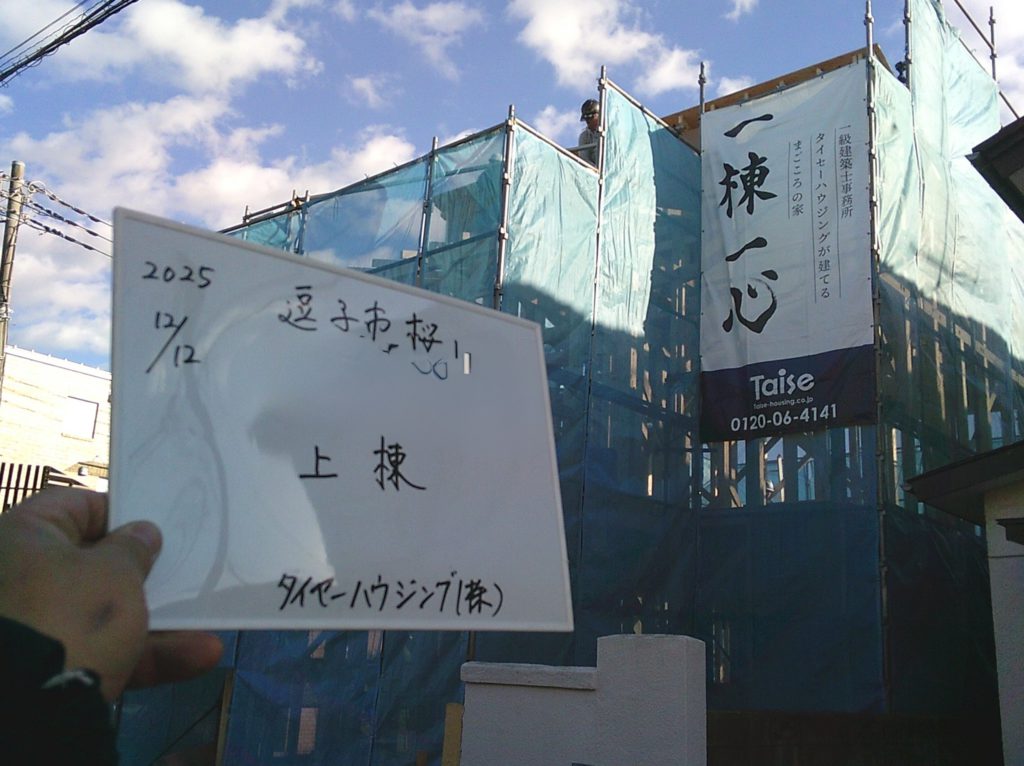 2025
12/12
逗子市桜山
上棟
タイセーハウジング(株)
一棟一心
一級建築士事務所
タイセーハウジングが建てる
まごころの家
Taise
taise-housing.co.jp
0120-06-4141